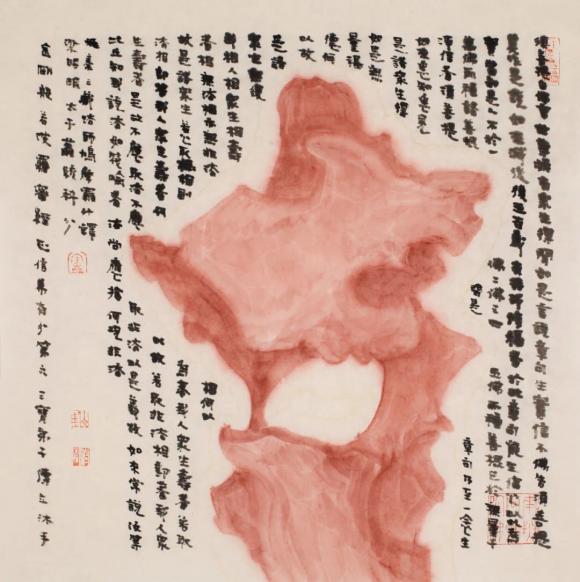 須菩提白佛言世尊頗有眾生得聞如是言說章句生實信不佛告須菩提
莫作是說如來滅後後五百歲有持戒修福者於此章句能生信心以此為
實當知是人不於一佛二佛三四五佛而種善根已於無量千
萬佛所種諸善根聞是章句乃至一念生
淨信者須菩提
如來悉知悉見
是諸眾生得
如是無
量福
德何
以故
是諸
眾生無復
我相人相眾生相壽
者相無法相亦無非法
相何以
故是諸眾生若心取相則
為著我人眾生壽者若取
法相即著我人眾生壽者何
以故若取非法相即著我人眾
生壽者是故不應取法不應
取非法以是義故如來常說汝等
比丘知我說法如筏喻者法尚應捨何況非法
姚秦三藏法師鳩摩羅什譯
梁昭明太子蕭統科分
金剛般若波羅蜜經正信希有分第六三寶弟子傅立沐手